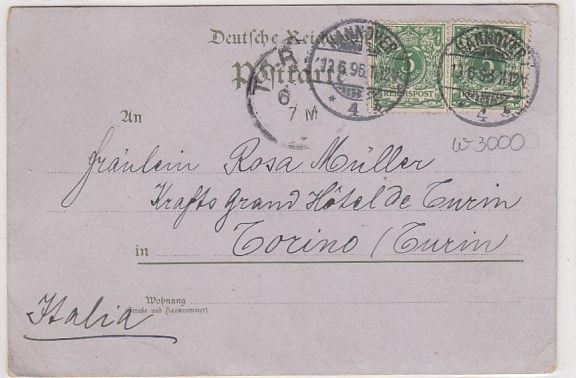 Deutsche Reichspost
Postkarte
HANNOVER
12.6.96.
* 4 b
HANNOVER
* 4
5
REICHSPOST
5
6
7 M
W 3000
An
Fräulein Rosa Müller
Krafts Grand Hôtel de Turin
in Torino (Turin
Wohnung
(Straße und Hausnummer)
Italia